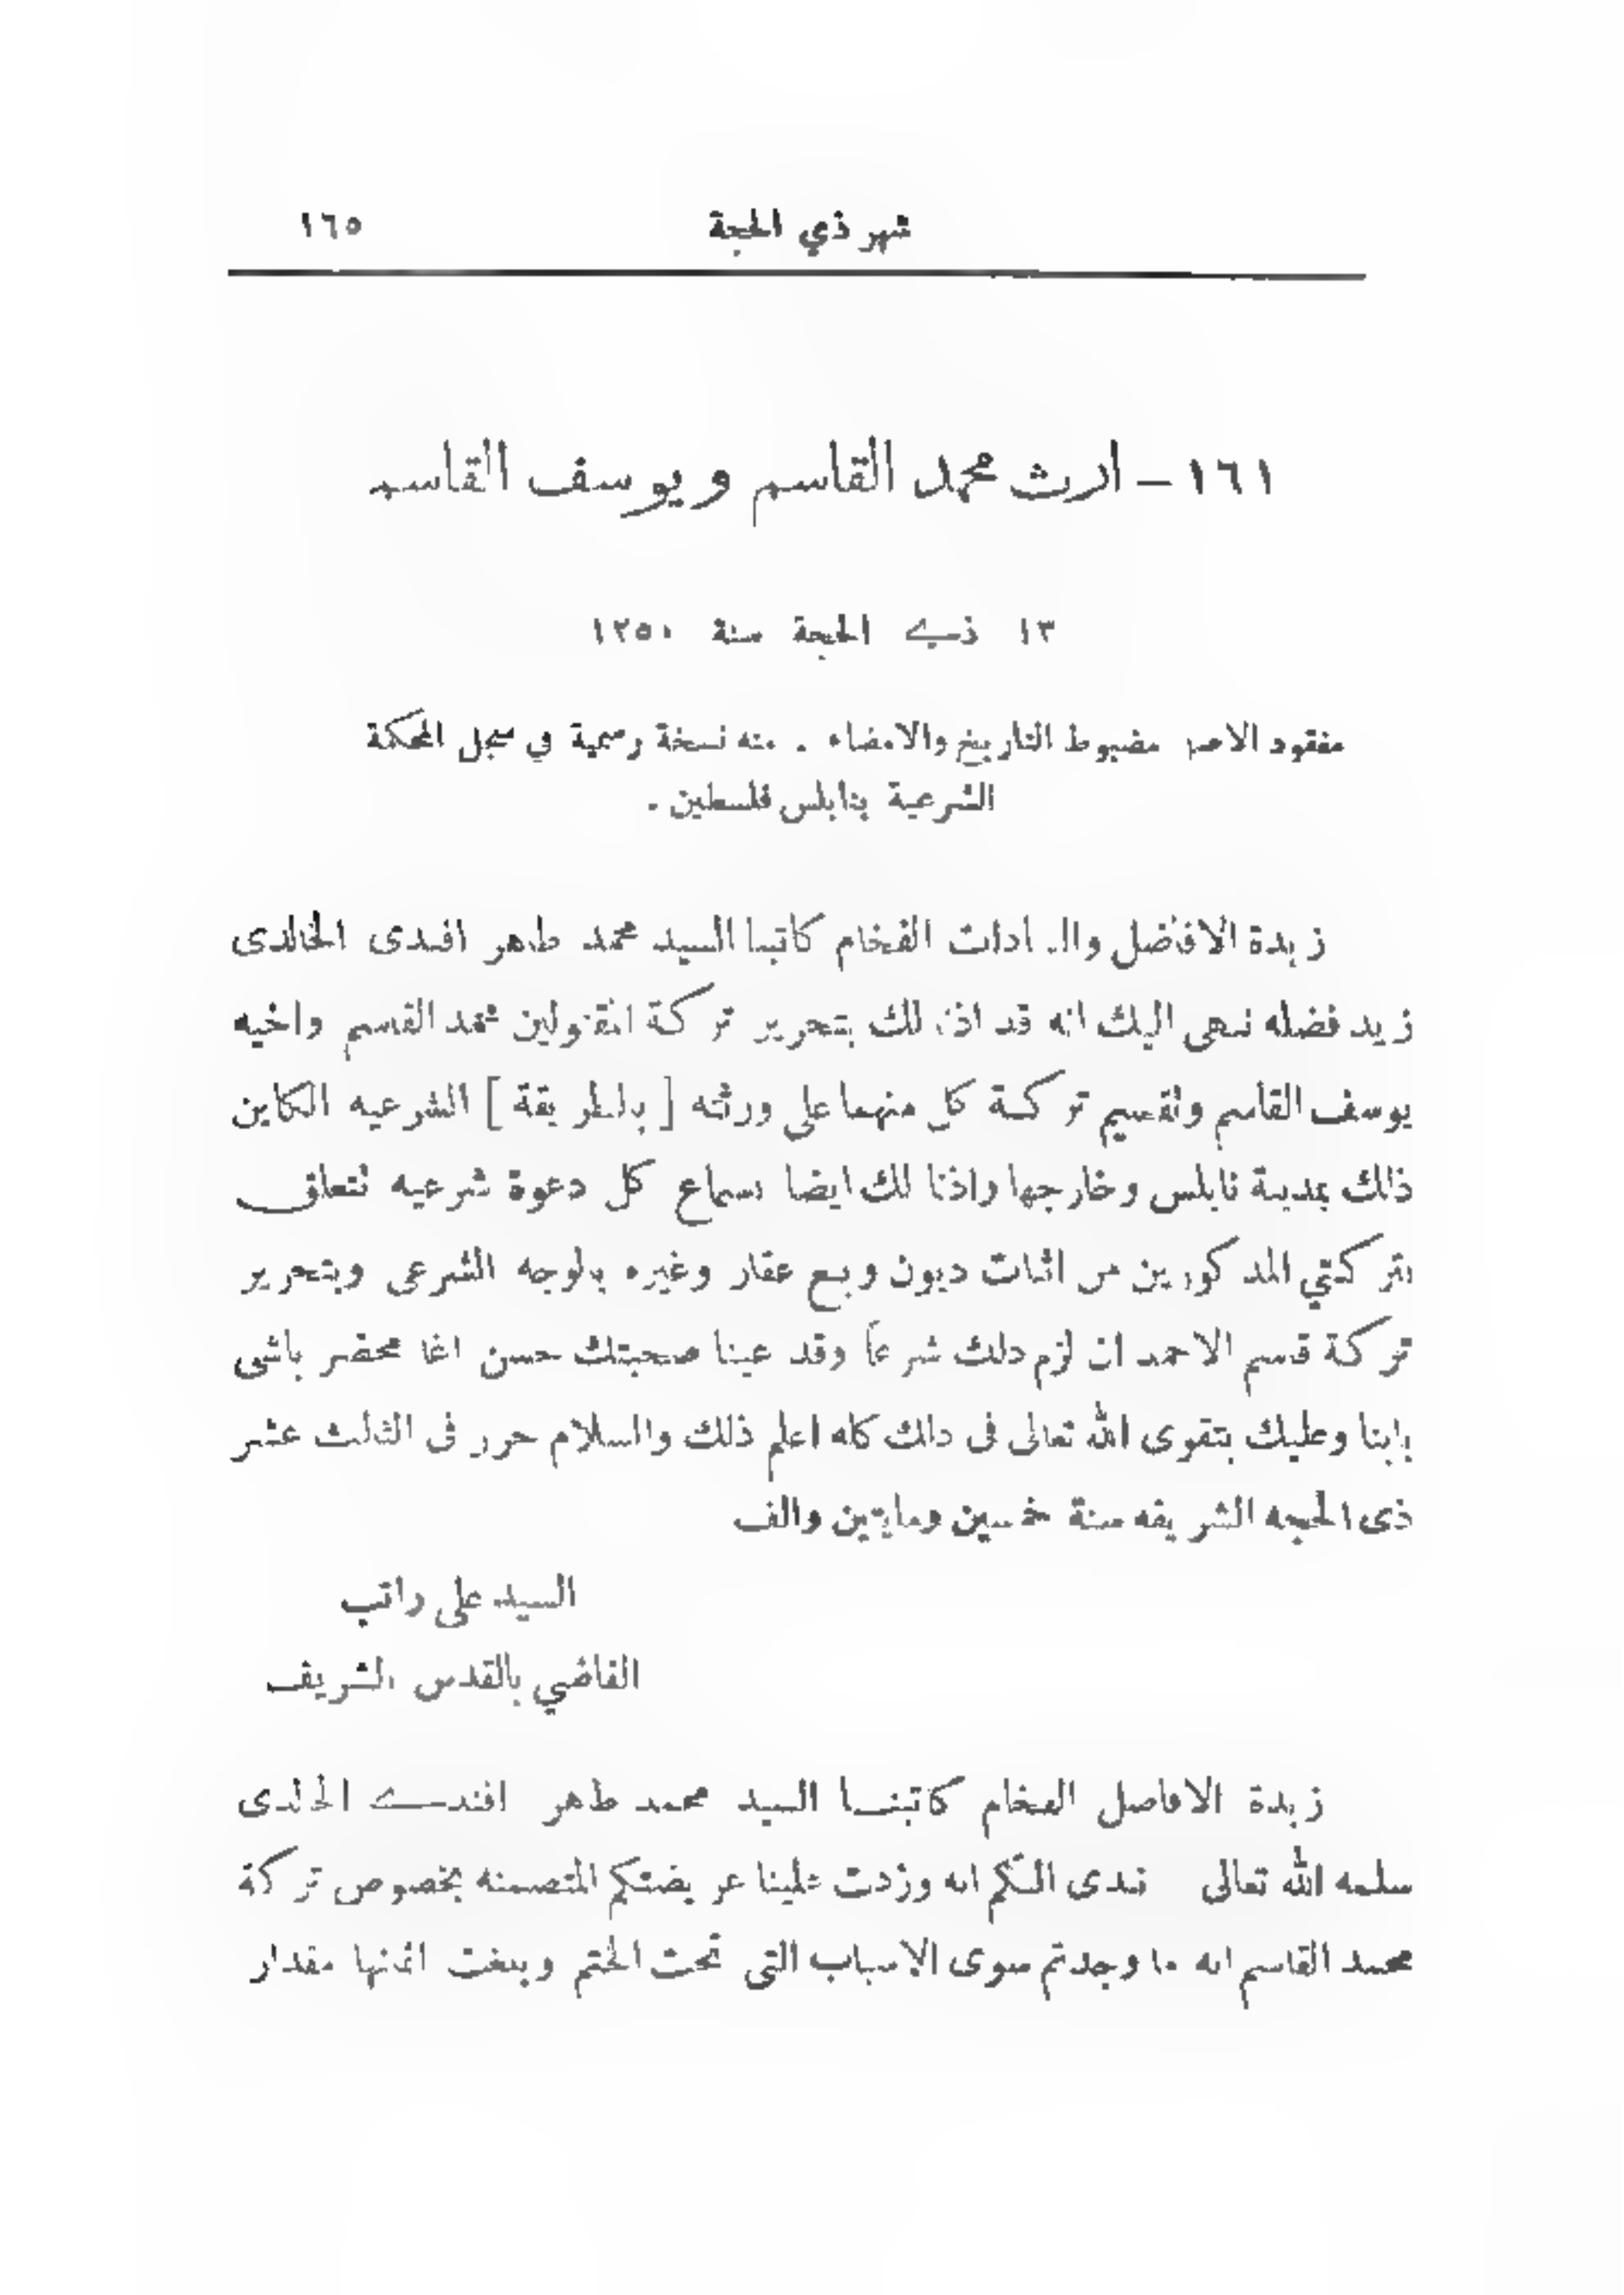 شهر ذي الحجة ١٦٥
١٦١ – ارث محمد القاسم ويوسف القاسم
١٣ ذي الحجة سنة ١٢٥٠
مفقود الاصل مضبوط التاريخ والامضاء . منه نسخة رسمية في سجل المحكمة
الشرعية بنابلس فلسطين .
زبدة الافاضل والسادات الفخام كاتبنا السيد محمد طاهر افندى الخالدى
زيد فضله ننهى اليك انه قد اذنا لك بتحرير تركة المقتولين محمد القسم واخيه
يوسف القاسم ولقسيم تركة كل منهما على ورثته [ بالطريقة ] الشرعيه الكاين
ذلك بمدينة نابلس وخارجها واذنا لك ايضا بسماع كل دعوة شرعيه لتعلق
بتركتي المذكورين من اثبات ديون وبيع عقار وغيره بالوجه الشرعى وبتحرير
تركة قسم الاحمد ان لزم ذلك شرعاً وقد عينا صحبتك حسن اغا محضر باشى
بابنا وعليك بتقوى الله تعالى فى ذلك كله اعلم ذلك والسلام حرر فى الثالث عشر
ذى الحجه الشريفه سنة خمسين ومايتين والف
السيد على راتب
القاضي بالقدس الشريف
زبدة الافاضل الفخام كاتبنا السيد محمد طاهر افندي الخالدى
سلمه الله تعالى نبدى اليكم انه وردت علينا عريضتكم المتضمنه بخصوص تركة
محمد القاسم انه ما وجدتم سوى الاسباب التى تحت الختم وبلغت اثمنها مقدار